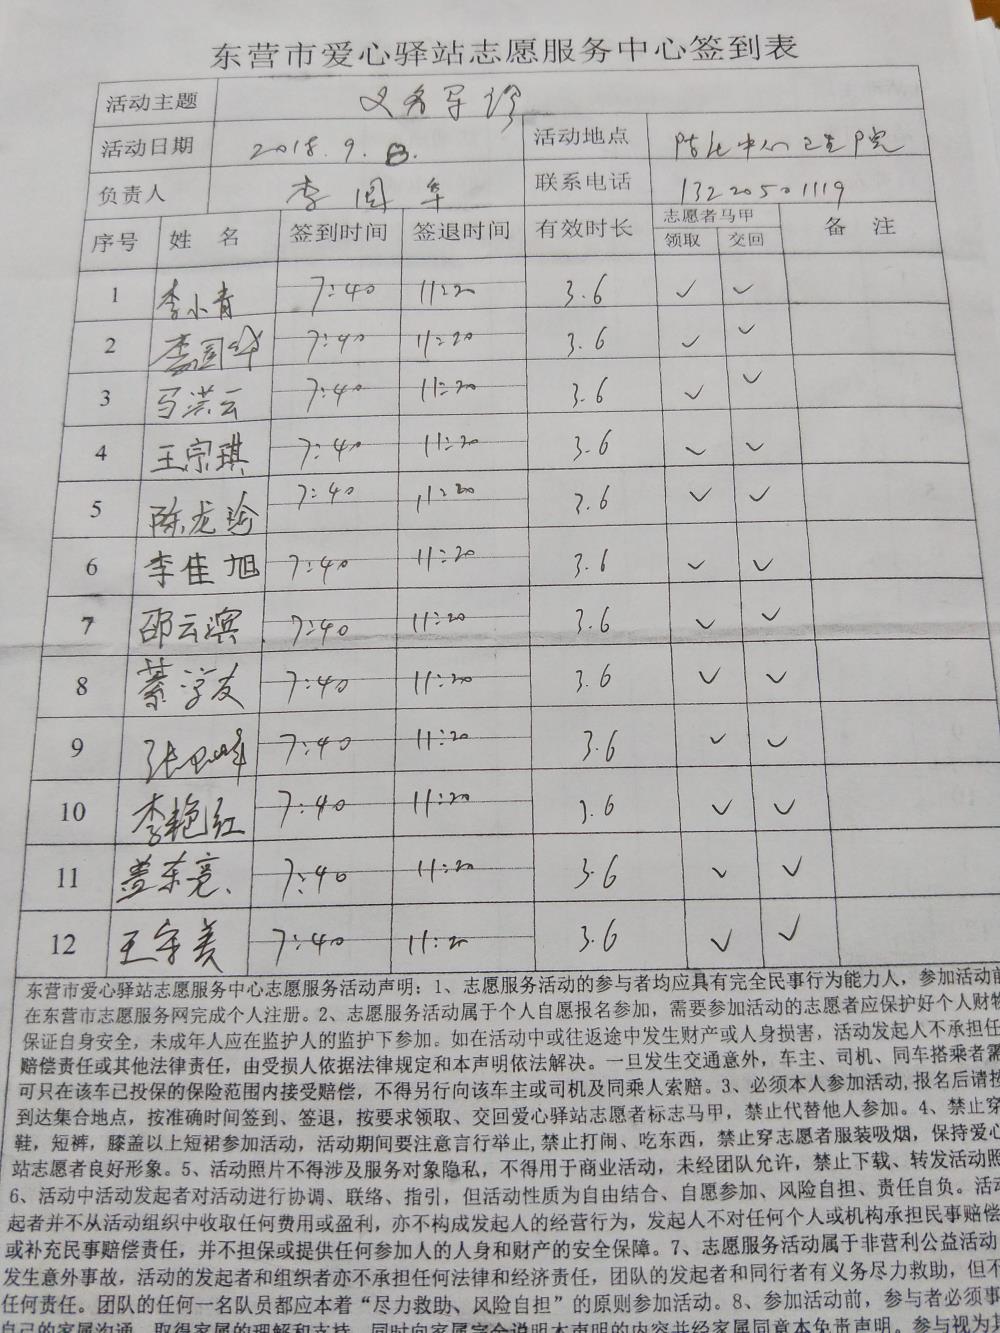 东营市爱心驿站志愿服务中心签到表
活动主题 义务导诊
活动日期 2018.9.8. 活动地点 陈庄中心卫生院
负责人 李国华 联系电话 13220501119
序号 姓 名 签到时间 签退时间 有效时长 志愿者马甲 备 注
领取 交回
1 李小青 7:40 11:20 3.6 ✓ ✓
2 李国华 7:40 11:20 3.6 ✓ ✓
3 马洪云 7:40 11:20 3.6 ✓ ✓
4 王宗琪 7:40 11:20 3.6 ✓ ✓
5 陈龙 7:40 11:20 3.6 ✓ ✓
6 李佳旭 7:40 11:20 3.6 ✓ ✓
7 邵云滨 7:40 11:20 3.6 ✓ ✓
8 綦学友 7:40 11:20 3.6 ✓ ✓
9 张 峰 7:40 11:20 3.6 ✓ ✓
10 李艳红 7:40 11:20 3.6 ✓ ✓
11 盖东亮 7:40 11:20 3.6 ✓ ✓
12 王守美 7:40 11:20 3.6 ✓ ✓
东营市爱心驿站志愿服务中心志愿服务活动声明：1、志愿服务活动的参与者均应具有完全民事行为能力人，参加活动前
在东营市志愿服务网完成个人注册。2、志愿服务活动属于个人自愿报名参加，需要参加活动的志愿者应保护好个人财物
保证自身安全，未成年人应在监护人的监护下参加。如在活动中或往返途中发生财产或人身损害，活动发起人不承担任
赔偿责任或其他法律责任，由受损人依据法律规定和本声明依法解决。一旦发生交通意外，车主、司机、同车搭乘者需
可只在该车已投保的保险范围内接受赔偿，不得另行向该车主或司机及同乘人索赔。3、必须本人参加活动,报名后请按
到达集合地点，按准确时间签到、签退，按要求领取、交回爱心驿站志愿者标志马甲，禁止代替他人参加。4、禁止穿
鞋，短裤，膝盖以上短裙参加活动，活动期间要注意言行举止,禁止打闹、吃东西，禁止穿志愿者服装吸烟，保持爱心
站志愿者良好形象。5、活动照片不得涉及服务对象隐私，不得用于商业活动，未经团队允许，禁止下载、转发活动照
6、活动中活动发起者对活动进行协调、联络、指引，但活动性质为自由结合、自愿参加、风险自担、责任自负。活动
起者并不从活动组织中收取任何费用或盈利，亦不构成发起人的经营行为，发起人不对任何个人或机构承担民事赔偿
或补充民事赔偿责任，并不担保或提供任何参加人的人身和财产的安全保障。7、志愿服务活动属于非营利公益活动
发生意外事故，活动的发起者和组织者亦不承担任何法律和经济责任，团队的发起者和同行者有义务尽力救助，但不
任何责任。团队的任何一名队员都应本着“尽力救助、风险自担”的原则参加活动。8、参加活动前，参与者必须事
自己的家属沟通，取得家属的理解和支持，同时向家属完全说明本声明的内容并经家属同意本免责声明。参与视为